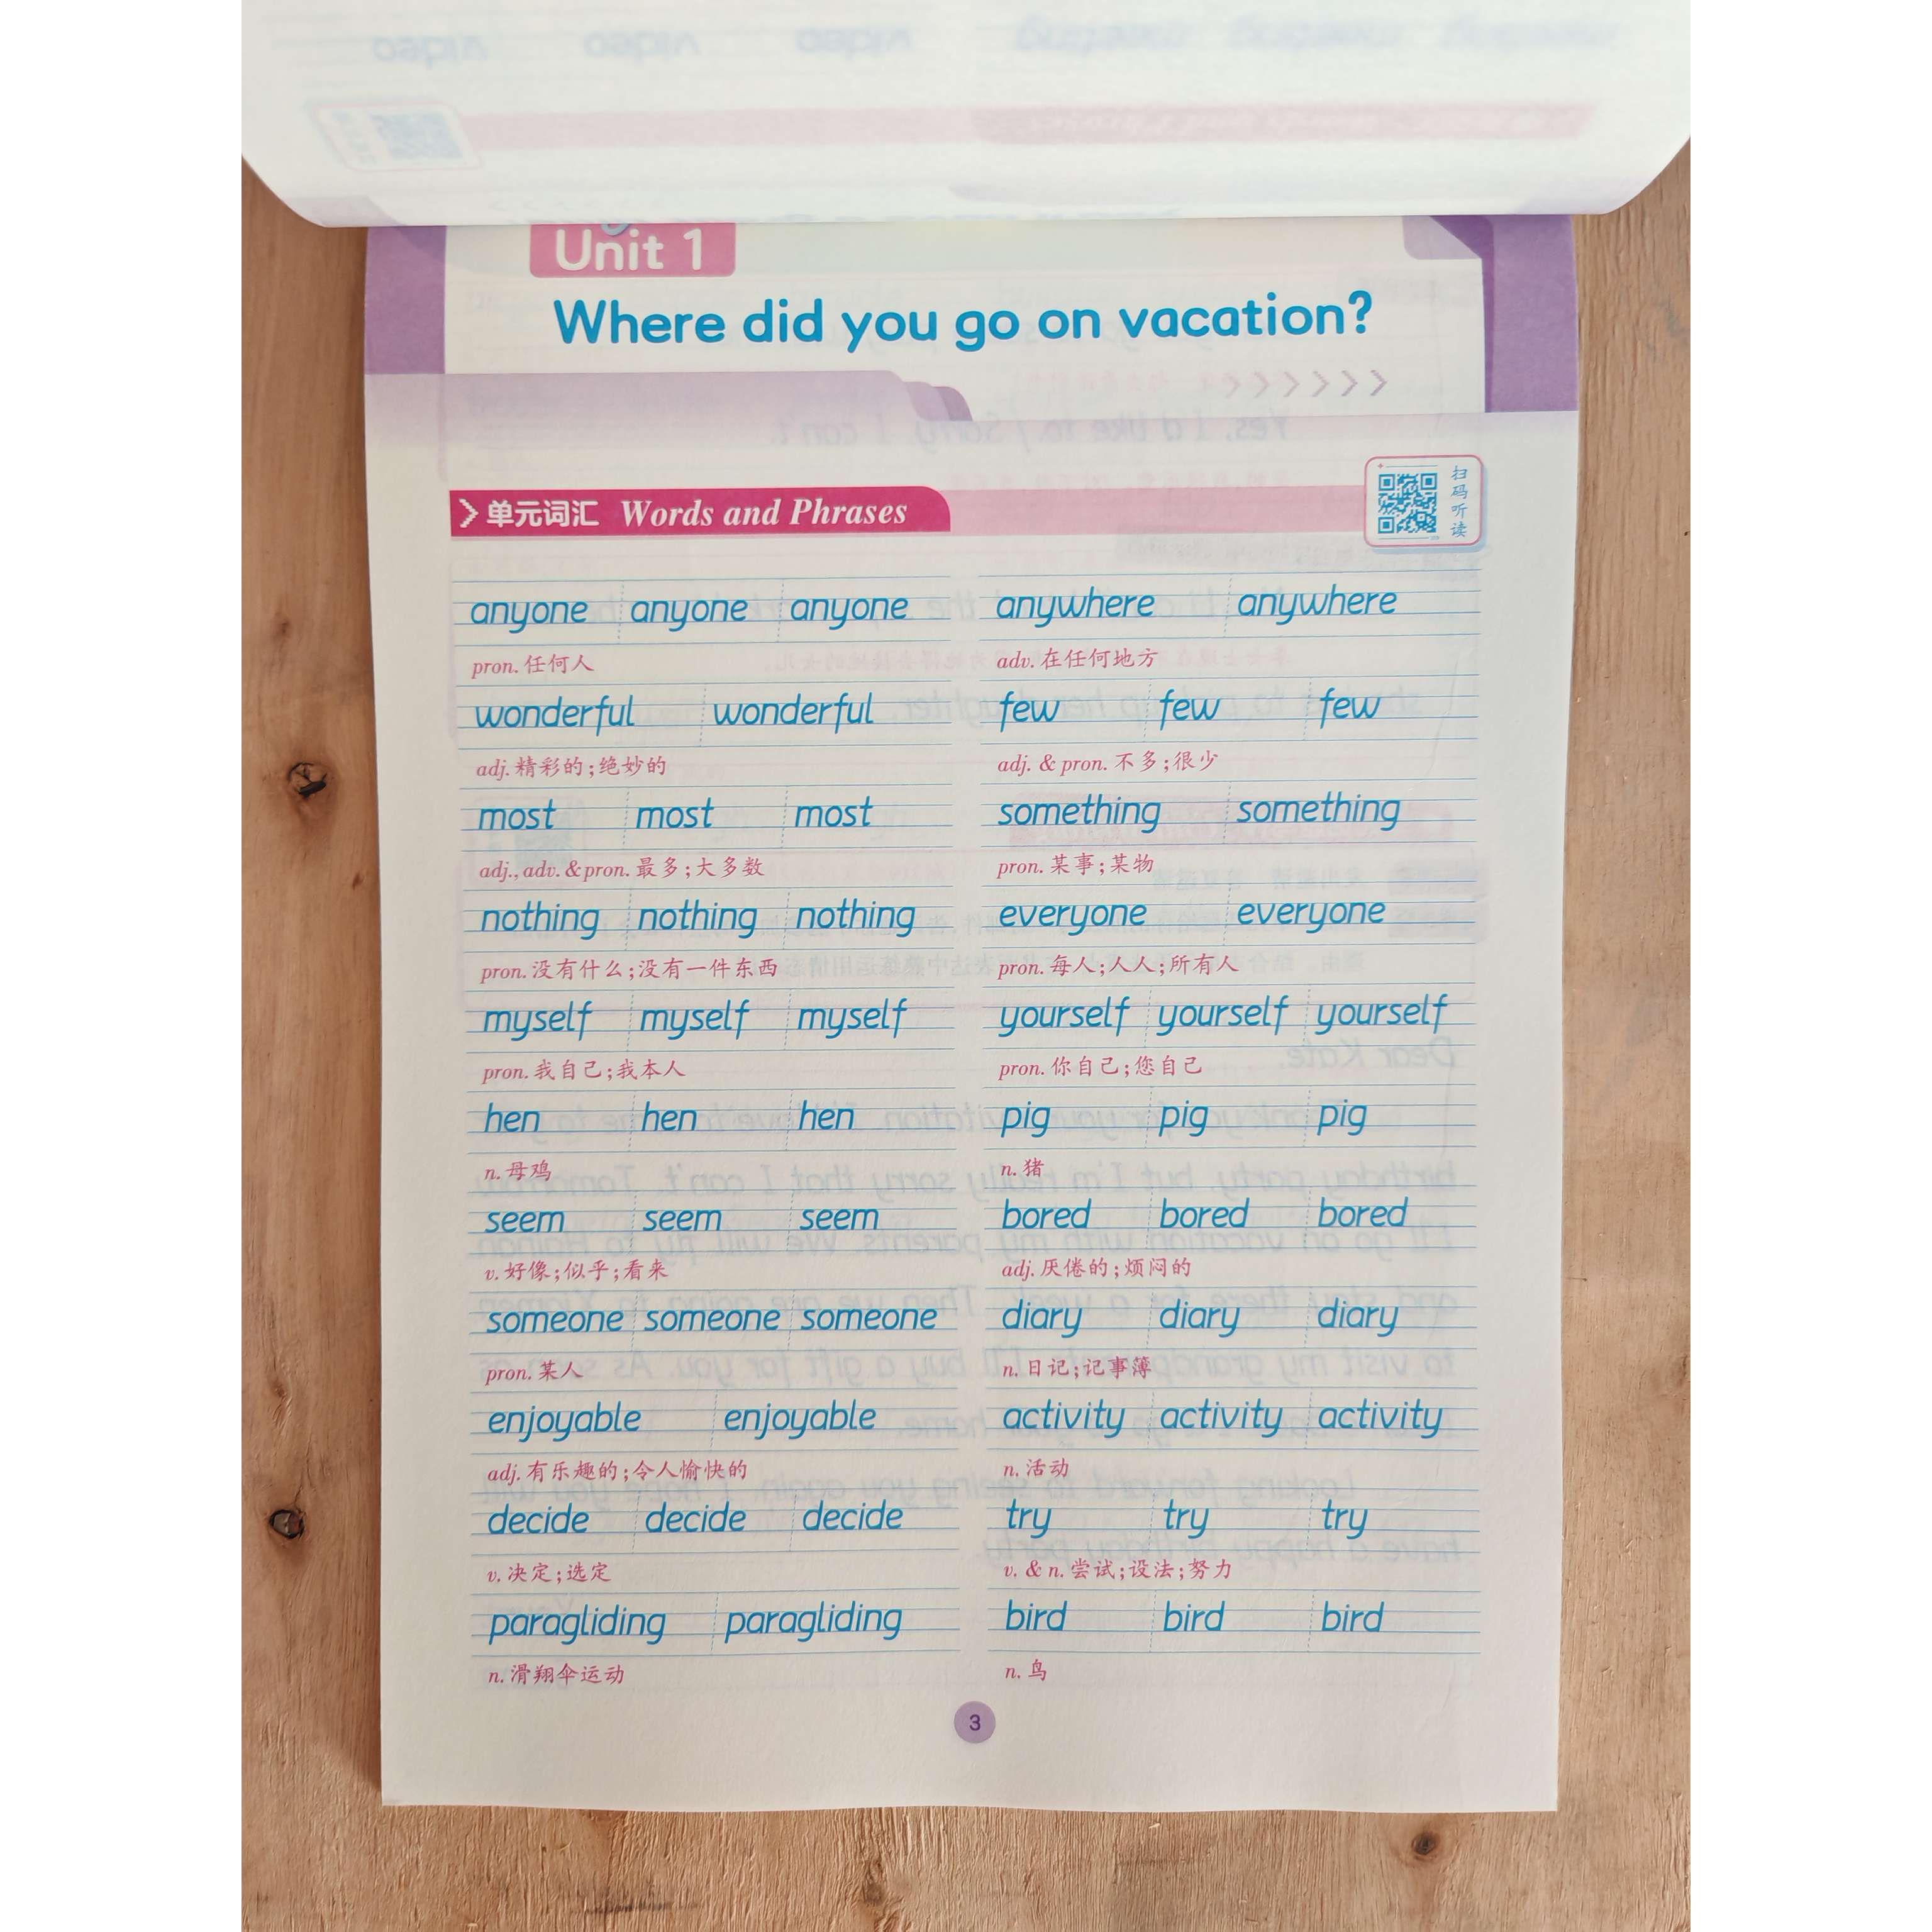 Unit 1
Where did you go on vacation?
单元词汇 Words and Phrases
扫码听读
anyone anyone anyone
pron. 任何人
anywhere anywhere
adv. 在任何地方
wonderful wonderful
adj. 精彩的;绝妙的
few few few
adj. & pron. 不多;很少
most most most
adj., adv. & pron. 最多;大多数
something something
pron. 某事;某物
nothing nothing nothing
pron. 没有什么;没有一件东西
everyone everyone
pron. 每人;人人;所有人
myself myself myself
pron. 我自己;我本人
yourself yourself yourself
pron. 你自己;您自己
hen hen hen
n. 母鸡
pig pig pig
n. 猪
seem seem seem
v. 好像;似乎;看来
bored bored bored
adj. 厌倦的;烦闷的
someone someone someone
pron. 某人
diary diary diary
n. 日记;记事簿
enjoyable enjoyable
adj. 有乐趣的;令人愉快的
activity activity activity
n. 活动
decide decide decide
v. 决定;选定
try try try
v. & n. 尝试;设法;努力
paragliding paragliding
n. 滑翔伞运动
bird bird bird
n. 鸟
3